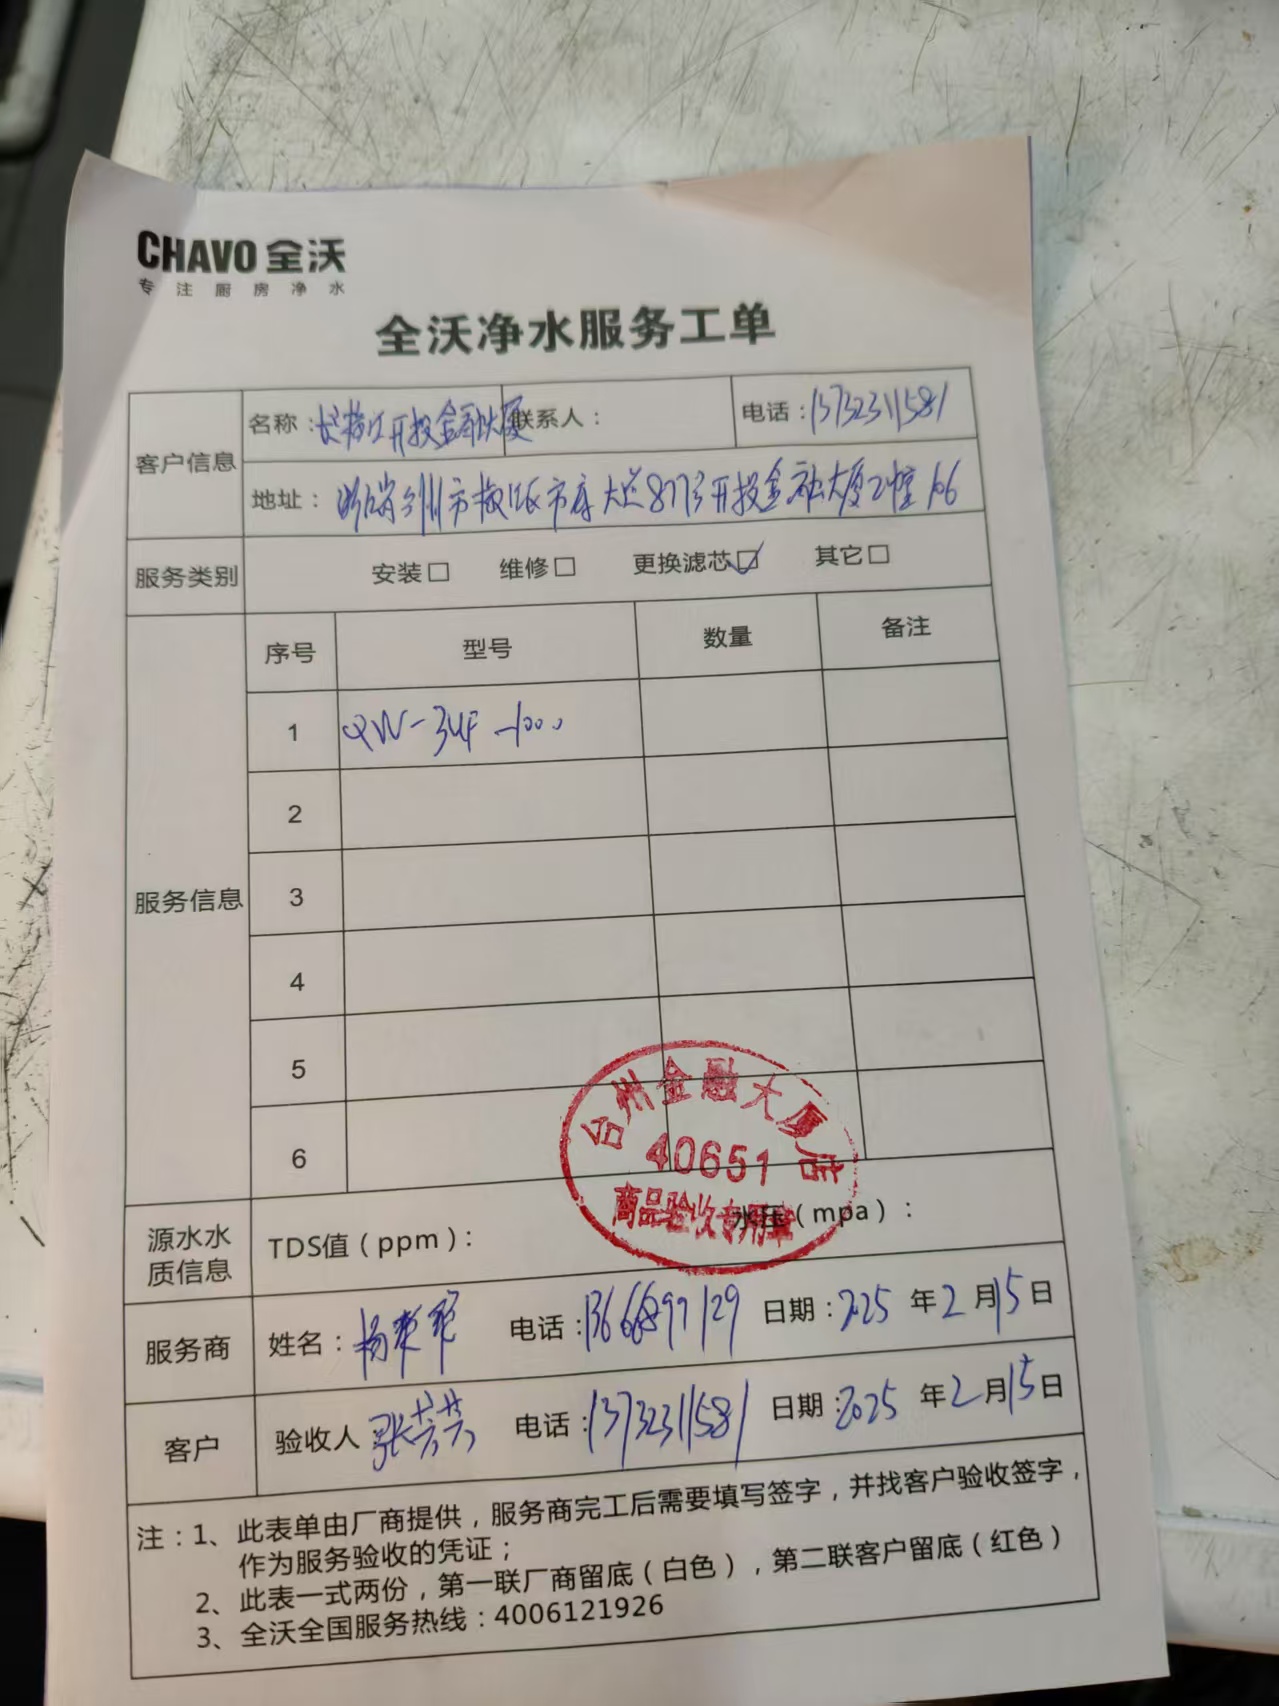 CHAVO 全沃
专注厨房净水
全沃净水服务工单
客户信息
名称：开投金融大厦 联系人： 电话：13732311581
地址：浙江省台州市椒江区市府大道877号开投金融大厦2幢106
服务类别 安装□ 维修□ 更换滤芯☑ 其它□
服务信息
序号 型号 数量 备注
1 QW-3UF-1000
2
3
4
5
6
台州金融大厦店
40651
商品验收专用章
源水水质信息 TDS值（ppm）： 水压（mpa）：
服务商 姓名：杨 电话：13666897129 日期：2025 年 2 月 15 日
客户 验收人 张芸芸 电话：13732311581 日期：2025 年 2 月 15 日
注：1、此表单由厂商提供，服务商完工后需要填写签字，并找客户验收签字，
作为服务验收的凭证；
2、此表一式两份，第一联厂商留底（白色），第二联客户留底（红色）
3、全沃全国服务热线：4006121926